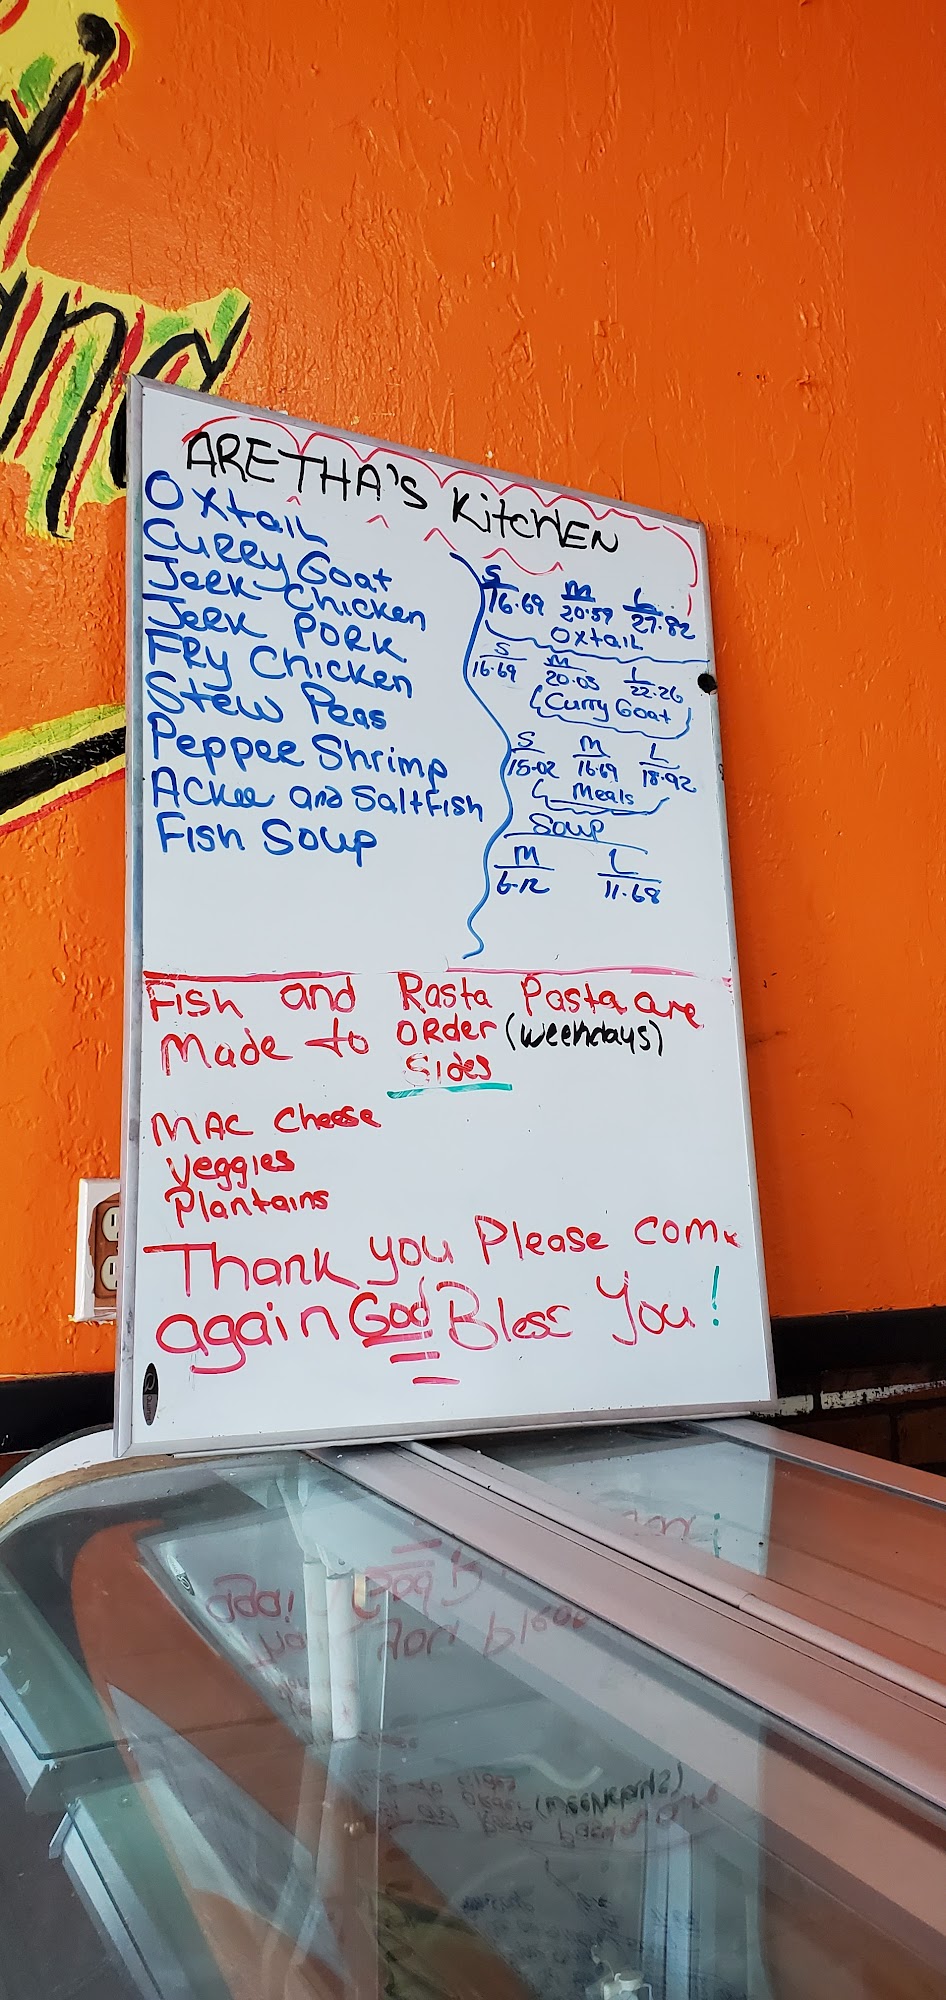 ARETHA'S KitcHEN
Oxtail
Curry Goat
Jerk Chicken
Jerk PORK
FRy Chicken
Stew Peas
Pepper Shrimp
Ackee and SaltFish
Fish Soup
S M L
16.69 20.59 27.82
Oxtail
S M L
16.69 20.03 22.26
Curry Goat
S M L
15.02 16.69 18.92
Meals
Soup
M L
6.12 11.68
Fish and Rasta Pasta are
Made to ORder (weekdays)
Sides
MAC cheese
Veggies
Plantains
Thank you Please come
again God Bless You!